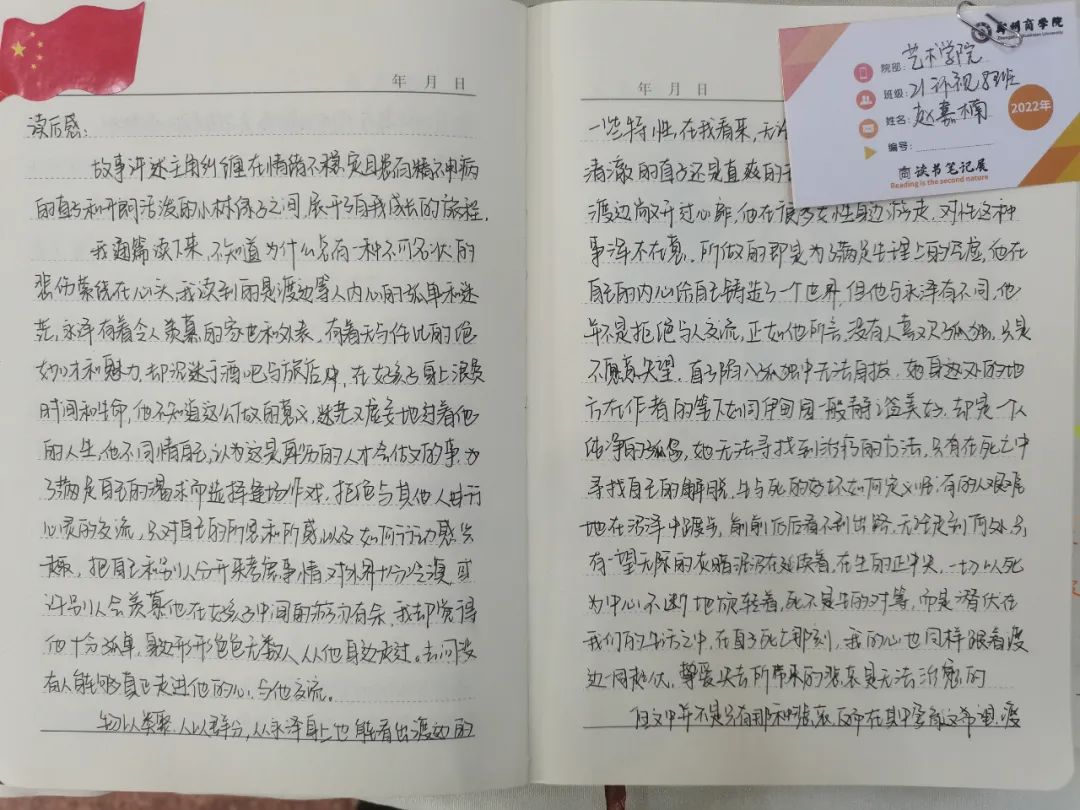 年 月 日
读后感:
故事讲述主角纠缠在情绪不稳定且患有精神病
的直子和开朗活泼的小林绿子之间,展开了自我成长的旅程。
我通篇读下来,不知道为什么总有一种不可名状的
悲伤萦绕在心头,我读到的是渡边等人内心的孤单和迷
茫,永泽有着令人羡慕的家世和外表,有着无与伦比的绝
妙口才和魅力,却沉迷于酒吧与旅店中,在女孩子身上浪费
时间和生命,他不知道这么做的意义,迷茫又虚妄地过着他
的人生,他不同情自己,认为这是卑劣的人才会做的事,为
了满足自己的渴求而选择逢场作戏,拒绝与其他人进行
心灵的交流,只对自己的所思和所感以及如何行动感兴
趣,把自己和别人分开来考虑事情,对外界十分冷漠,或
许别人会羡慕他在女孩子中间的游刃有余,我却觉得
他十分孤单,身边形形色色无数人从他身边走过。去问没
有人能够真正走进他的心,与他交流。
物以类聚,人以群分,从永泽身上也能看出渡边的
年 月 日
一些特性,在我看来,无论
清澈的直子还是直率的
渡边尚敞开过心扉,他在很多女性身边游走,对性这种
事淫不在意,所做的即是为了满足生理上的空虚,他在
自己的内心给自己铸造了一个世界,但他与永泽有不同,他
并不是拒绝与人交流,正如他所言,没有人喜欢孤独,只是
不愿意失望,直子陷入孤独中无法自拔,她身边的地
方在作者的笔下如同伊甸园一般静谧美好,却是一个
纯净的孤岛,她无法寻找到治疗的方法,只有在死亡中
寻找自己的解脱,生与死的好坏如何定义呢,有的人艰难
地在沼泽中踱步,前前后后看不到出路,无法走到何处,只
有一望无际的灰暗泥沼在延续着,在生的正中央,一切以死
为中心不断地旋转着,死不是生的对等,而是潜伏在
我们的生活之中,在直子死亡那刻,我的心也同样跟着渡
边一同起伏,挚爱失去所带来的悲哀是无法治愈的
但文中并不是只有那种悲哀,反而在其中孕育这希望,渡
郑州商学院
院部:艺术学院
班级:21环视8班
姓名:赵嘉楠
编号:
2022年
商读书笔记展
Reading is the second nature